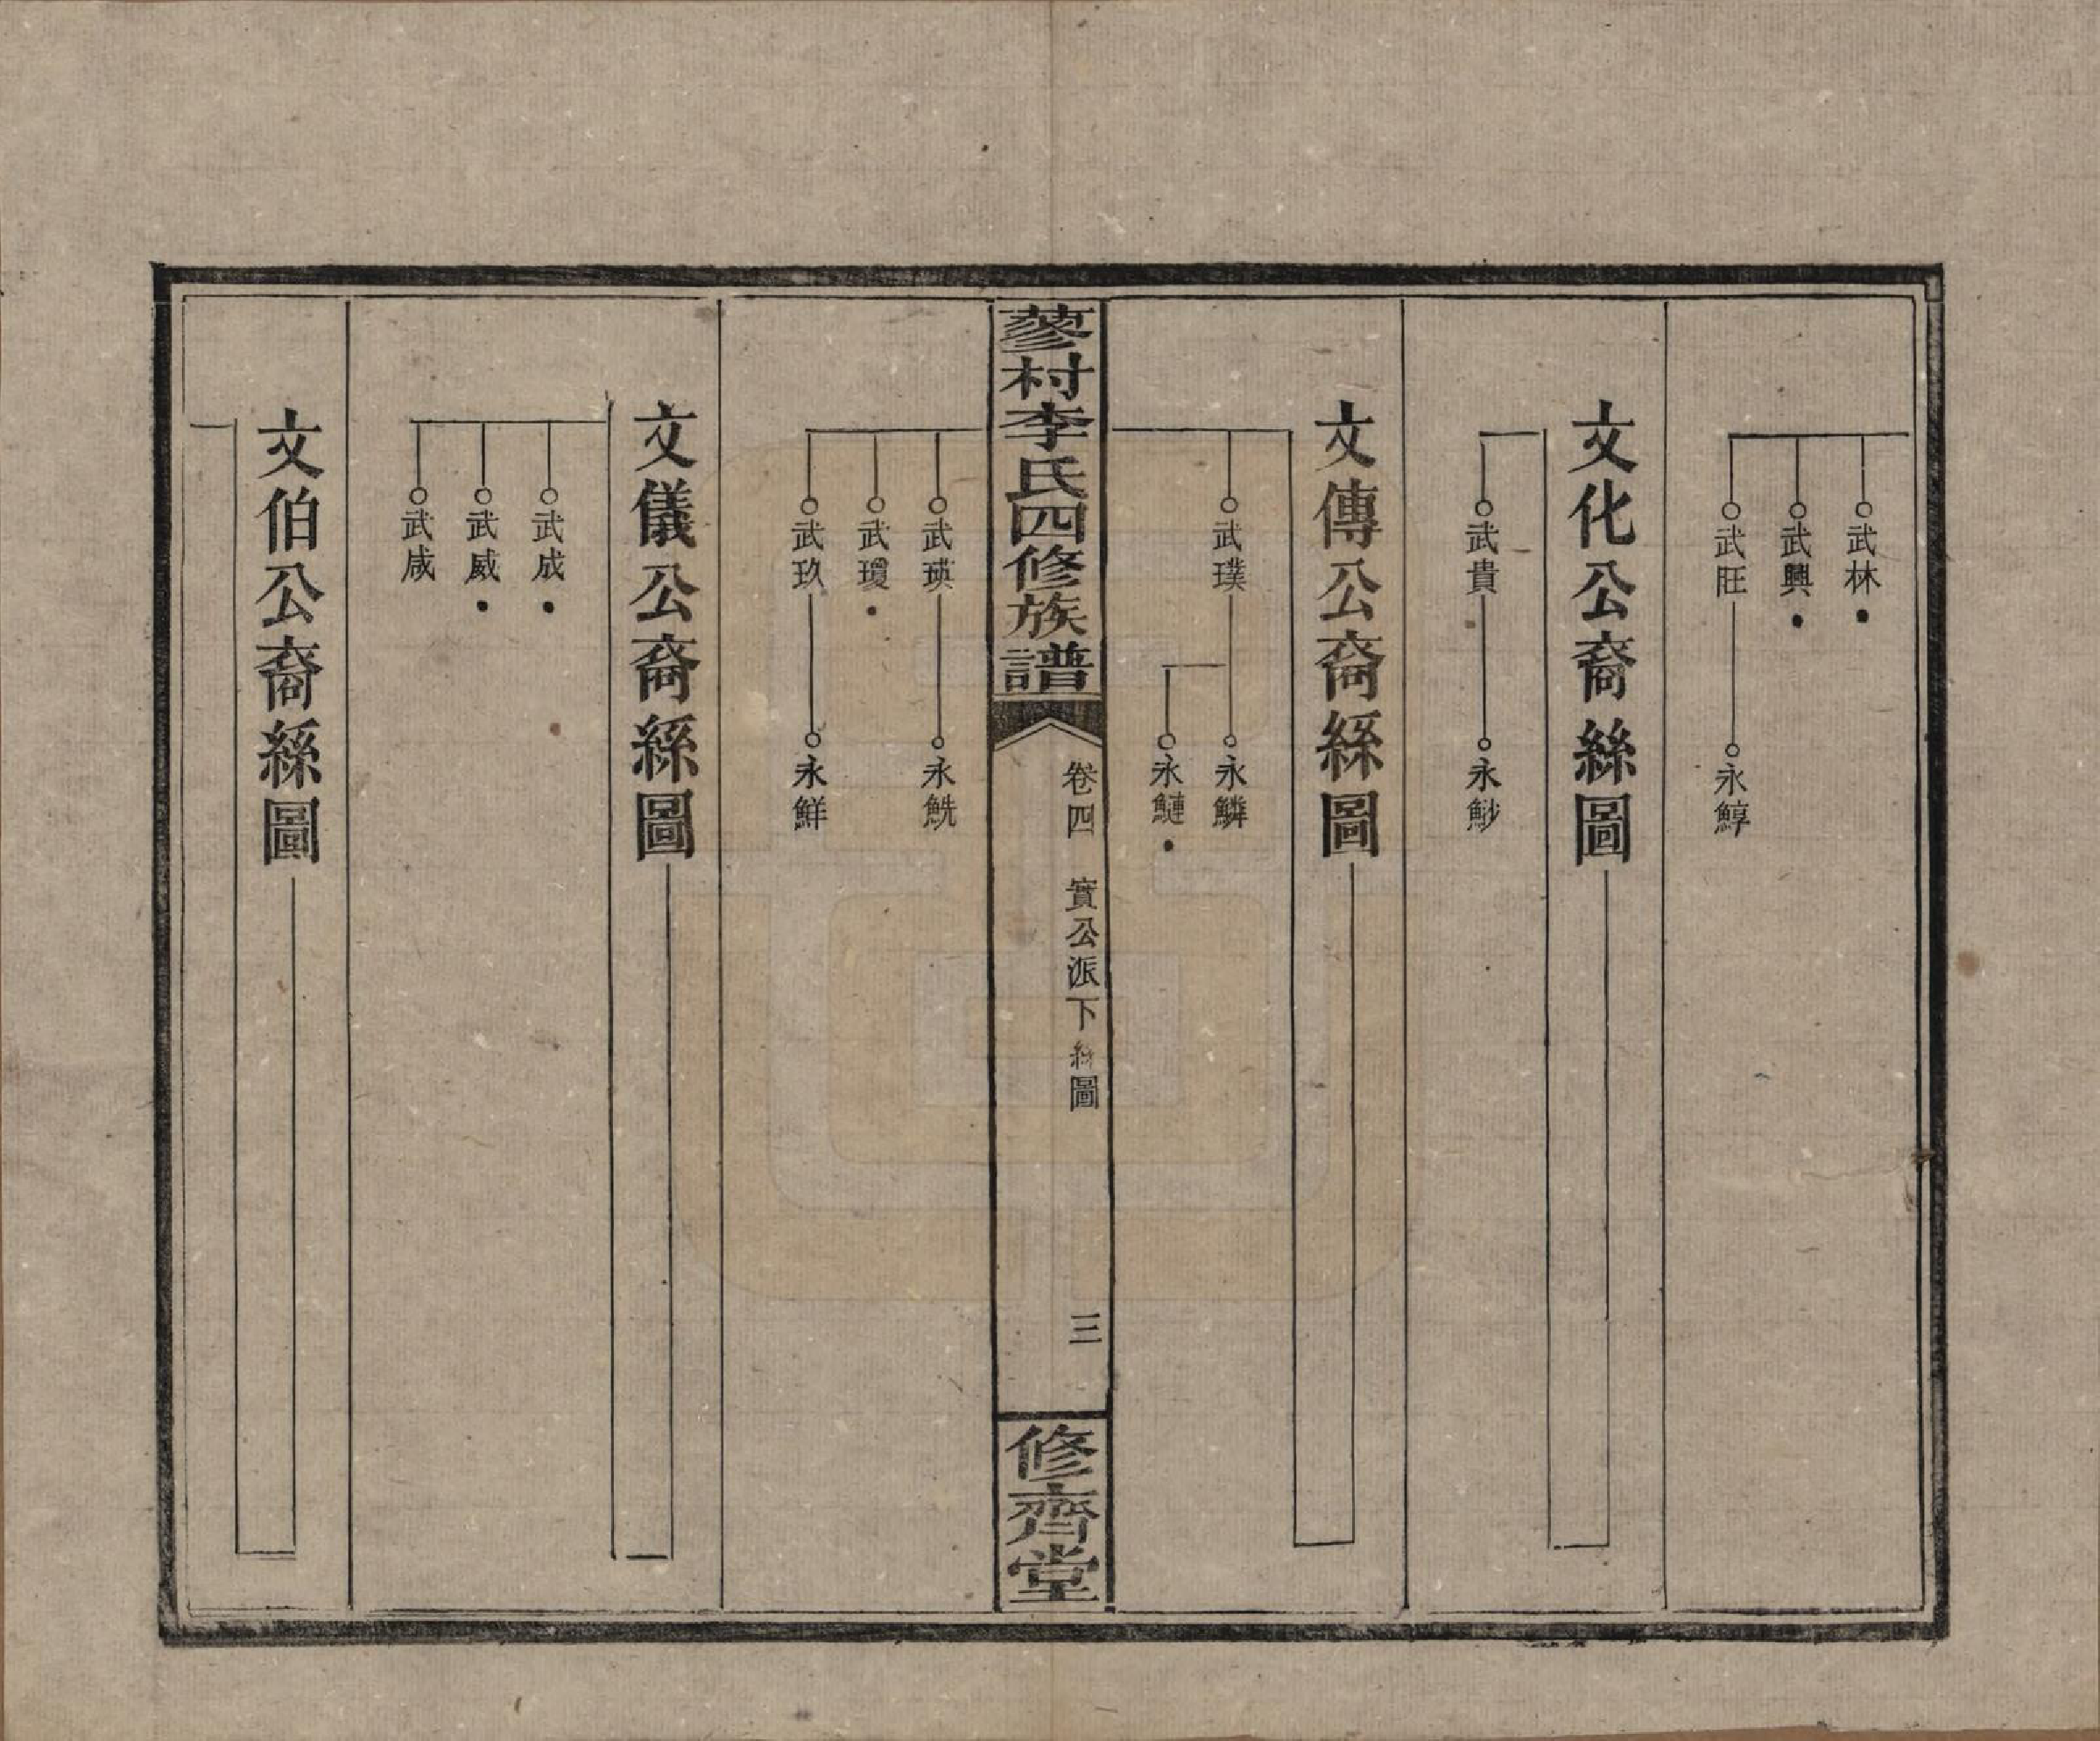 武林
武興
武旺
永鯙
文化公裔絲圖
武貴
永魦
文傳公裔絲圖
武璞
永鱗
永鰱
蓼村李氏四修族譜
卷四 實公派下絲圖
三
修齊堂
武瑛
永鮵
武瓊
武玖
永鮮
文儀公裔絲圖
武成
武威
武咸
文伯公裔絲圖